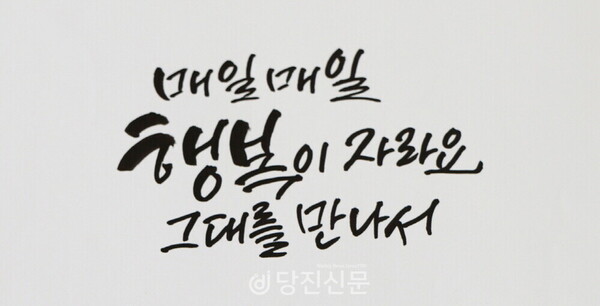 매일매일
행복이 자라요
그대를 만나서
당진신문